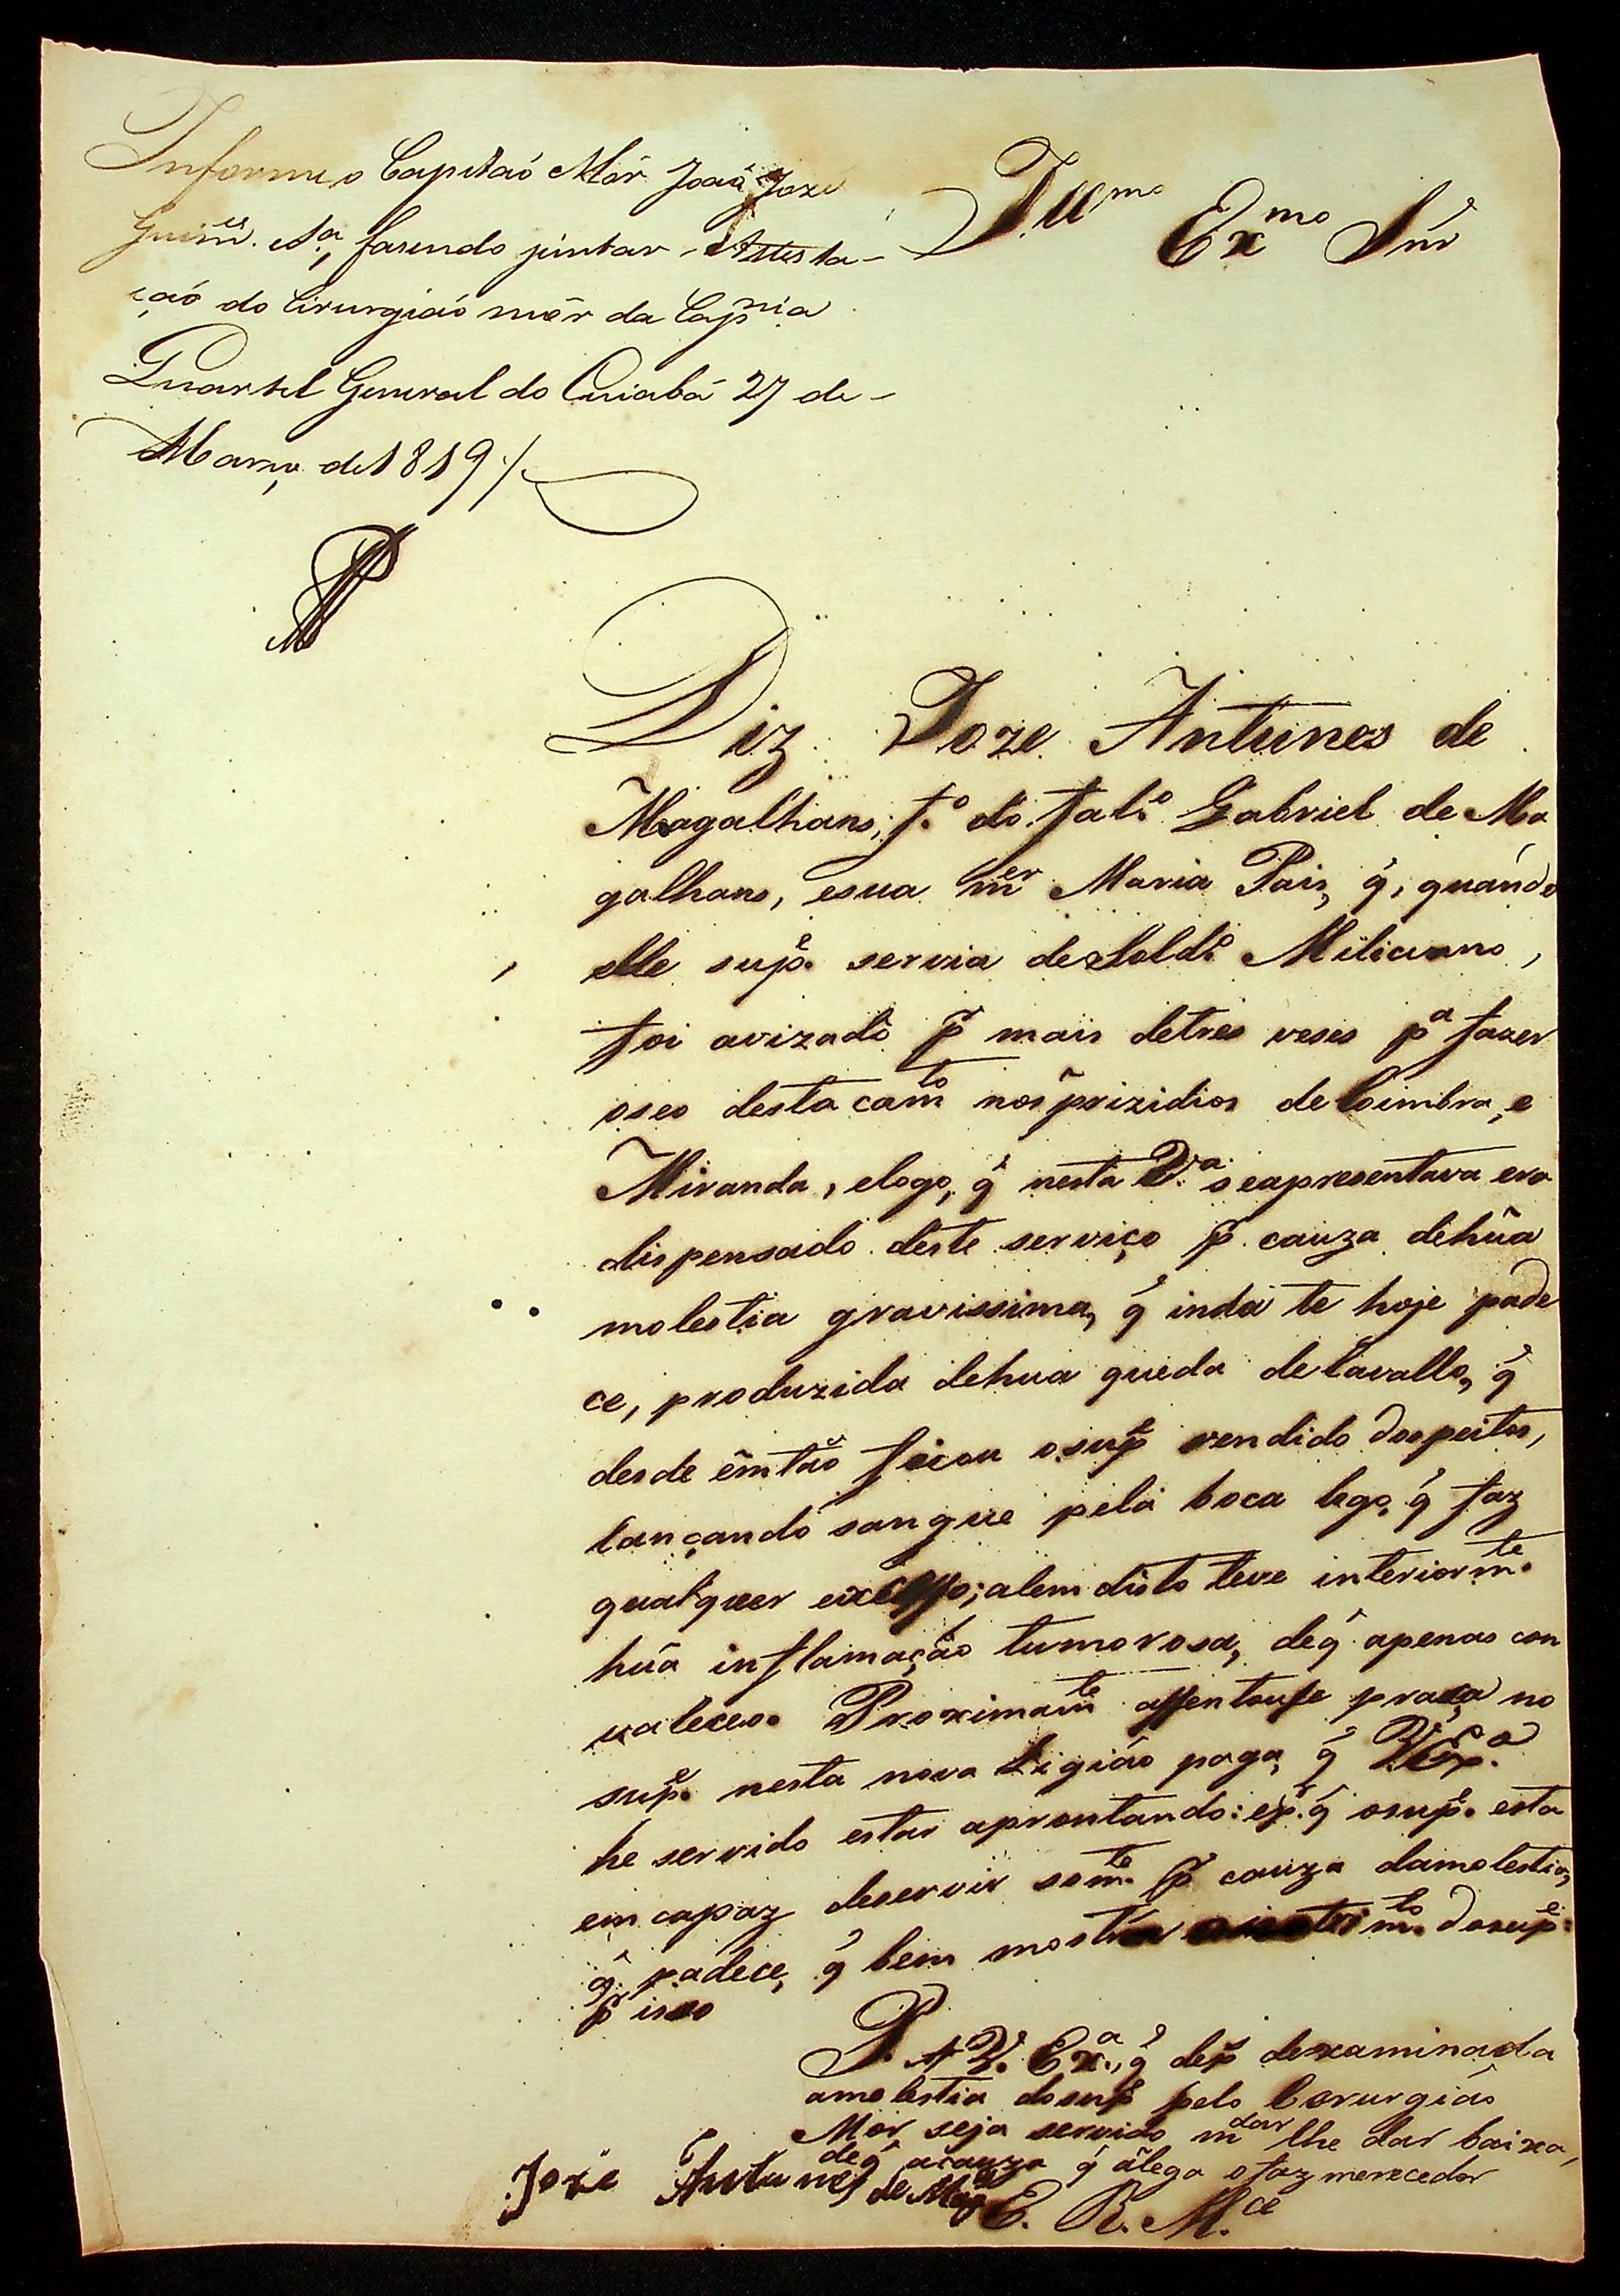 Informe o Capitaõ Mór Joaõ Joze
Guim.es S.a, fasendo juntar Attesta-
çaõ do Cirurgiaõ mór da Cap.nia
Quartel General do Cuiabá 27 de
Março de 1819
Ill.mo Ex.mo Snr
Diz Joze Antunes de
Magalhans, f.o do fal.o Gabriel de Ma
galhans, esua m.er Maria Pais, q̃, quando
elle sup.e servia de Sold.o Miliciano,
foi avizado p.r mais detres veses p.a fazer
oseo destacam.to nos prizidios de Coimbra, e
Miranda, elogo, q̃ nesta V.a seapresentava era
dispensado deste serviço p.r cauza dehũa
molestia gravissima, q̃ inda te hoje pade
ce, produzida dehua queda de Cavallo, q̃
desde emtaõ ficou osup.e rendido dos peitos,
lançando sangue pela boca logo, q̃ faz
qualquer excesso; alem disto teve interiorm.te
hũa inflamação tumorosa, deq̃ apenas con
valeceo. Proximam.te assentouse praça no
sup.e nesta nova Ligião paga, q̃ V. Ex.a
he servido estar aprontando: e p.r q̃ osup.e esta
emcapaz deservir som.te p.r cauza damolestia,
q̃ padece, q̃ bem mostra m.to dosup.e
p.r isso
P. A V. Ex.a, q̃ dep.s dexaminada
amolestia dosup.e pelo Corurgião
Mor, seja servido m.dar lhe dar baixa,
deq̃ acauza q̃ alega ofaz merecedor
E. R. M.ce
Joze Antunes de Mag.es